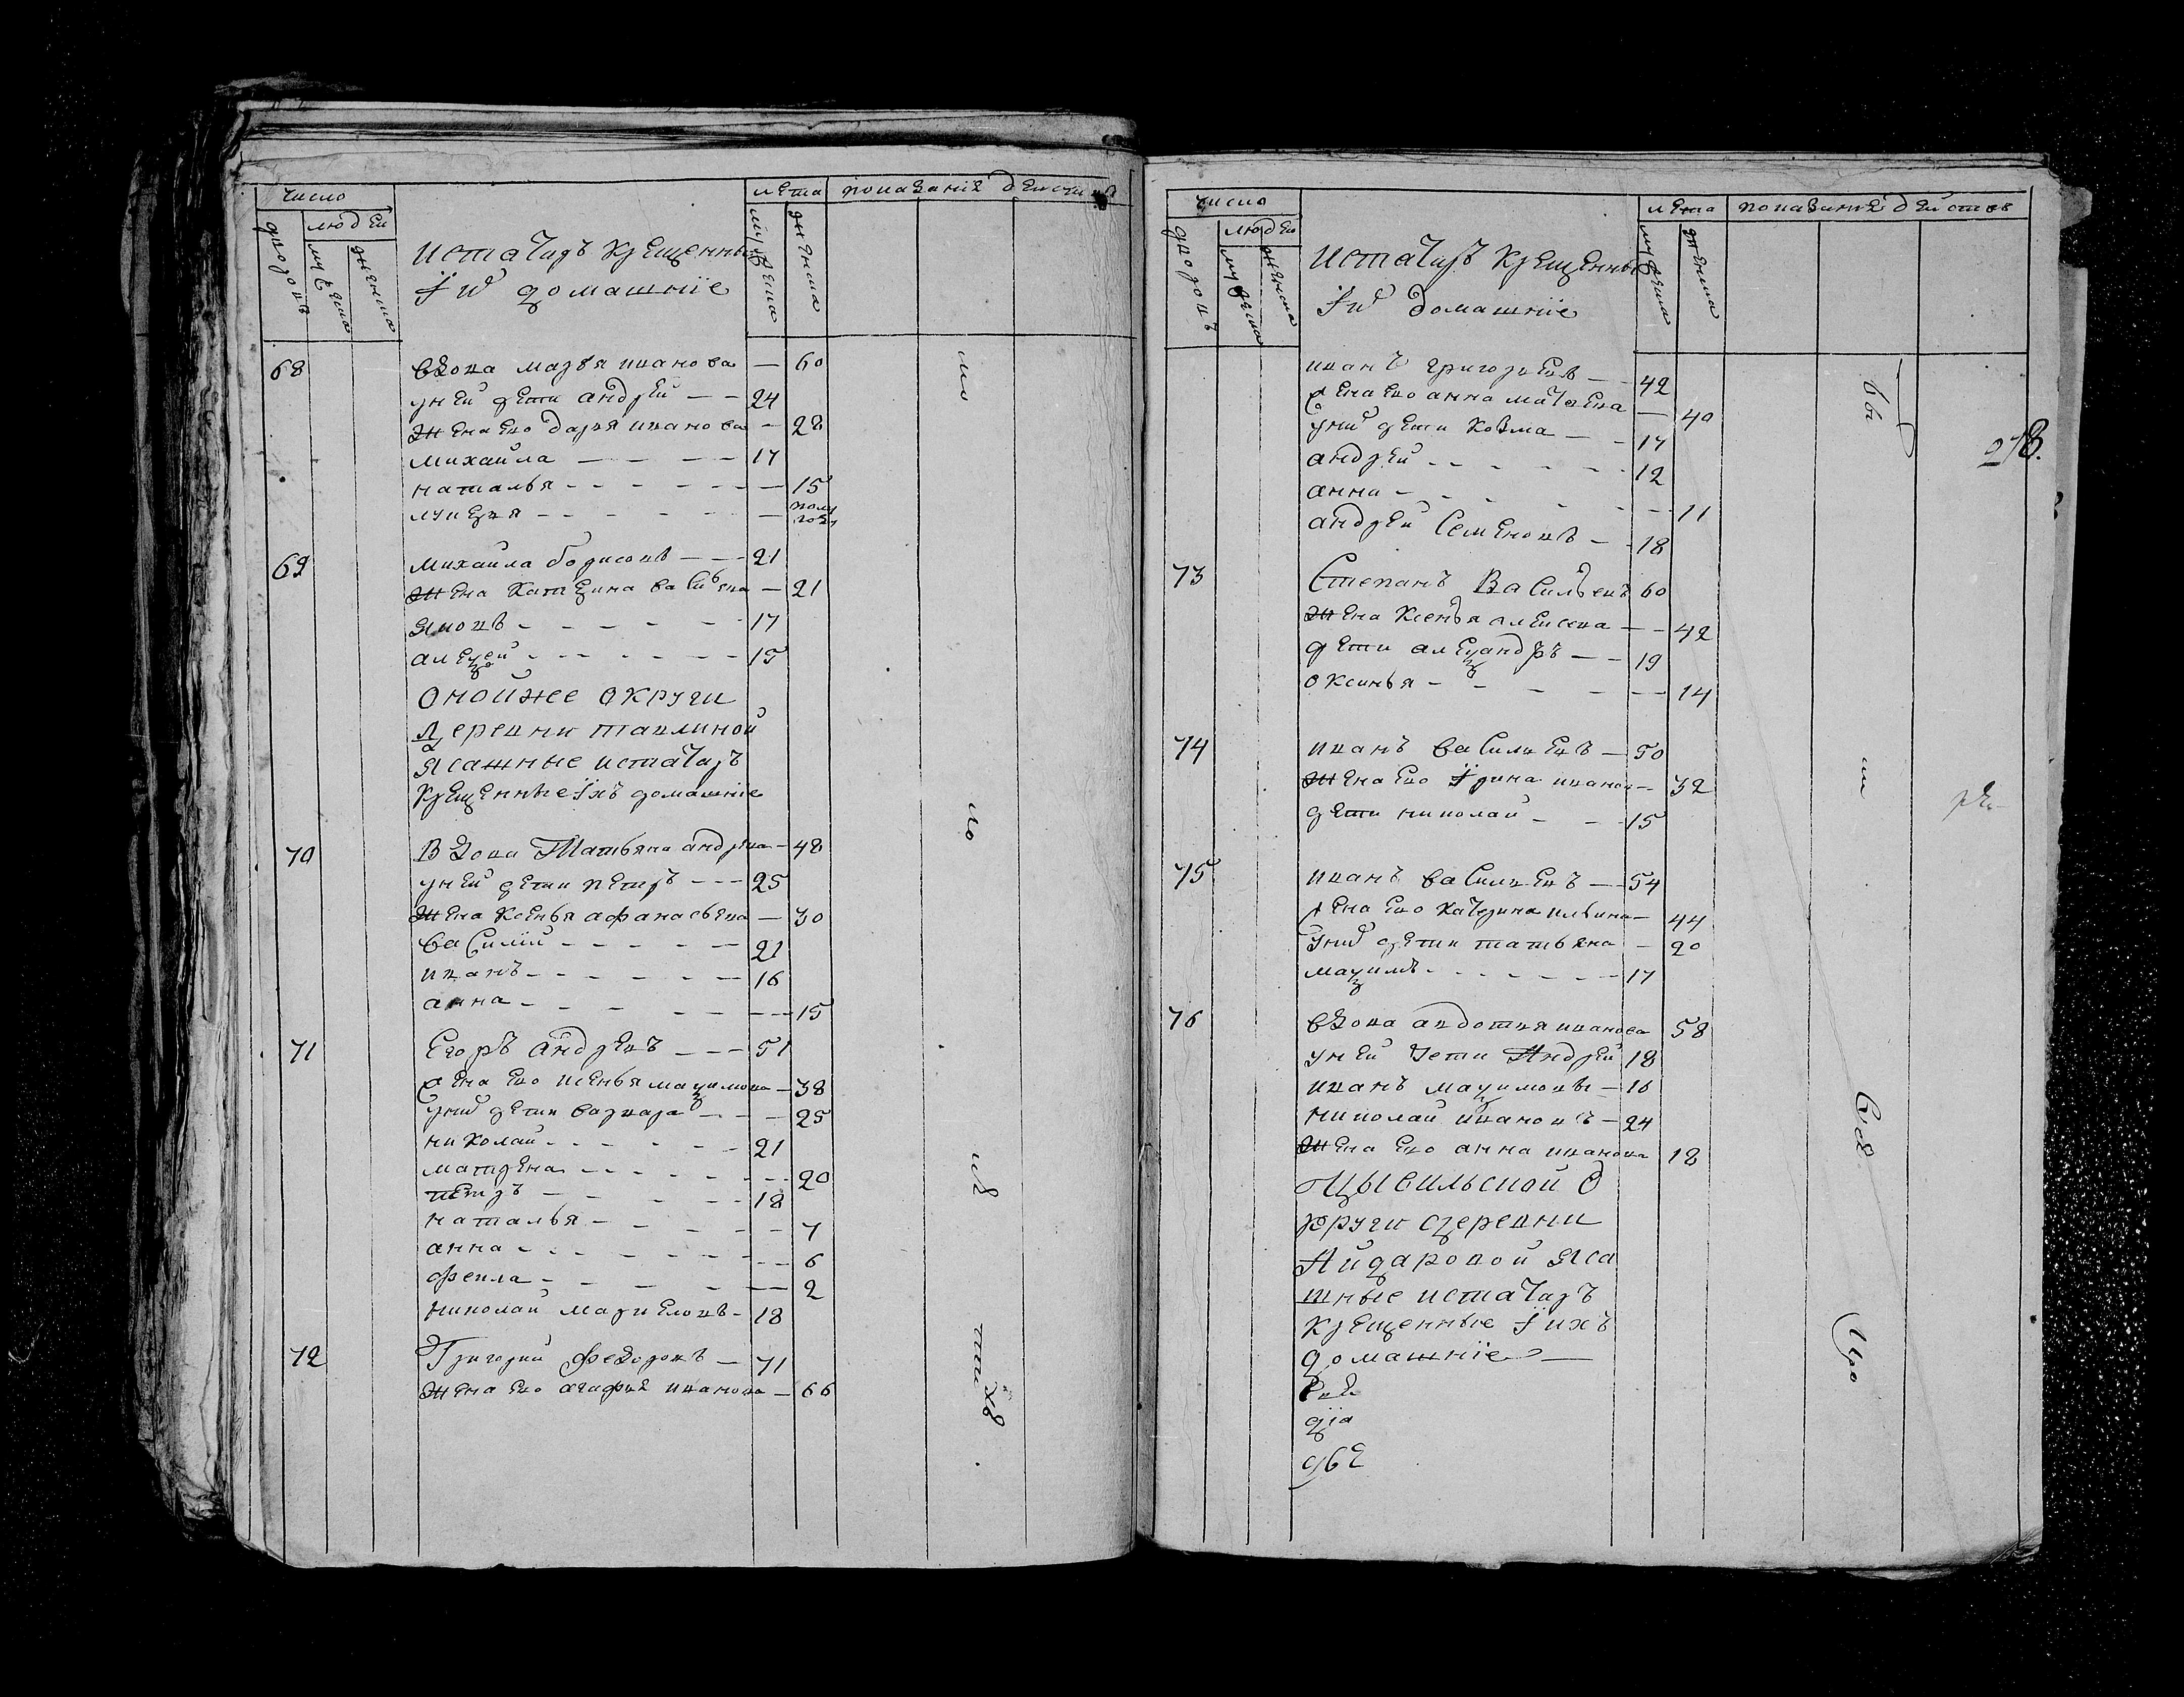 число
людей
дворовъ
мужеска
женска
истатаръ крещенныя
Iих домашнiе
лета
мужеска
женска
показанiе действ
68 вдова марья иванова — 60
у ней дети андрей — — 24
жена ево дарья иванова — 28
михаила — — — — 17
наталья — — — — 15
лукерья — — — — полу года
69 михаила борисовъ — — 21
жена катерина васильева — 21
яковъ — — — — 17
алексей — — — — 15
оной же округи
деревни тавлиной
ясашные истатаръ
крещенные Iихъ домашнiе
70 Вдова Татьяна андреева — 48
у ней дети петръ — — 25
жена ксенья афанасьева — 30
василiй — — — — 21
иванъ — — — — 16
анна — — — — 15
71 Егоръ андреевъ — — 51
жена ево ксенья максимова — 38
у них дети варвара — — 25
николай — — — — 21
матрена — — — — 20
петръ — — — — 18
наталья — — — — 7
анна — — — — 6
фекла — — — — 2
николай — 18
72 Григорий федоровъ — 71
жена ево агафья иванова — 66
число
людей
дворовъ
мужеска
женска
истатаръ крещенны
Iих домашнiе
лета
мужеска
женска
показание действъ
278.
иванъ григорьевъ — — 42
жена ево анна матвеева — 40
у них дети козма — — 17
андрей — — — — 12
анна — — — — 11
андрей семеновъ — — 18
73 Степанъ Васильевъ 60
жена ксенья алексеева — — 42
дети александръ — — 19
оксинья — — — — 14
74 иванъ васильевъ — 50
жена ево Iрина иванова — 32
дети николай — — 15
75 иванъ васильевъ — 54
жена ево катерина ильина — 44
у них дети татьяна — 20
максимъ — — — — 17
76 вдова авдотья иванова 58
у ней дети Андрей 18
иванъ максимовъ — 16
николай ивановъ — 24
жена ево анна иванова 18
Цывильской о
круги деревни
Айдаровой яса
шные истатаръ
крещенные Iихъ
домашнiе —